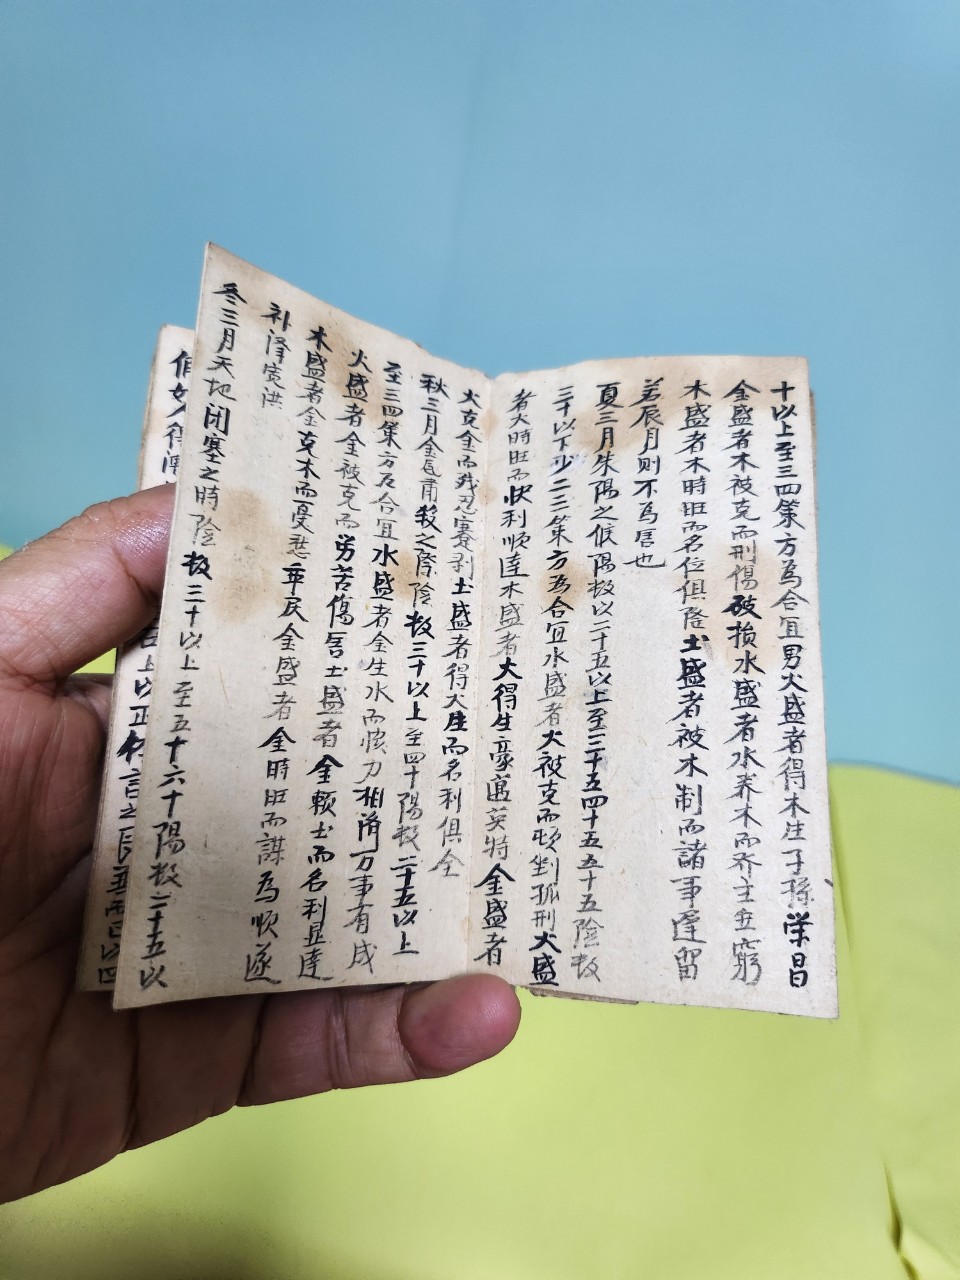 十以上至三四策方為合宜男火盛者得木生子孫荣昌
金盛者木被克而刑傷破損水盛者水养木而齐主金窮
木盛者木時旺而名位俱隆土盛者被木制而諸事遲留
若辰月则不為害也
夏三月朱陽之候陽数以二十五以上至三十五四十五五十五陰数
三十以下少二三策方為合宜水盛者火被克而頓剉孤刑火盛
者火時旺而快利順達木盛者火得生豪邁英特金盛者
火克金而残忍寡剥土盛者得火生而名利俱全
秋三月金氣肅殺之際陰数三十以上至四十陽数二十五以上
至三四策方為合宜水盛者金生水而恢力相濟万事有成
火盛者金被克而労苦傷害土盛者金賴土而名利显達
木盛者金克木而憂愁乖戾金盛者金時旺而謀為順遂
补泽宽洪
冬三月天地闭塞之時陰数三十以上至五十六十陽数二十五以